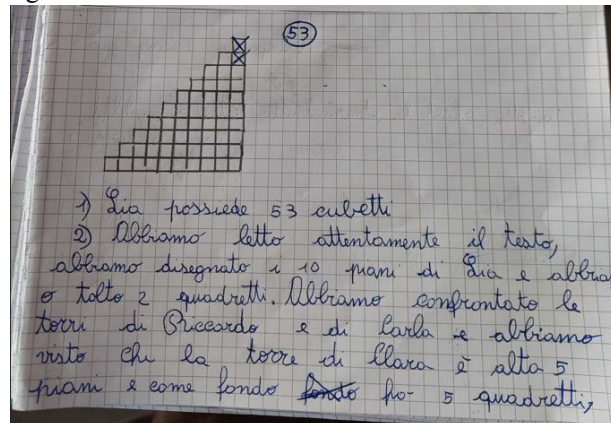 53
1) Lia possiede 53 cubetti
2) Abbiamo letto attentamente il testo,
abbiamo disegnato i 10 piani di Lia e abbia
o tolto 2 quadretti. Abbiamo confrontato le
torri di Riccardo e di Carla e abbiamo
visto che la torre di Clara è alta 5
piani e come fondo ha 5 quadretti,